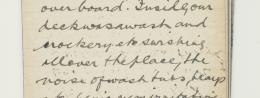 overboard. Inside your
deck was awash and
crockery etc swishing
all over the place, the
noise of wash tubs,